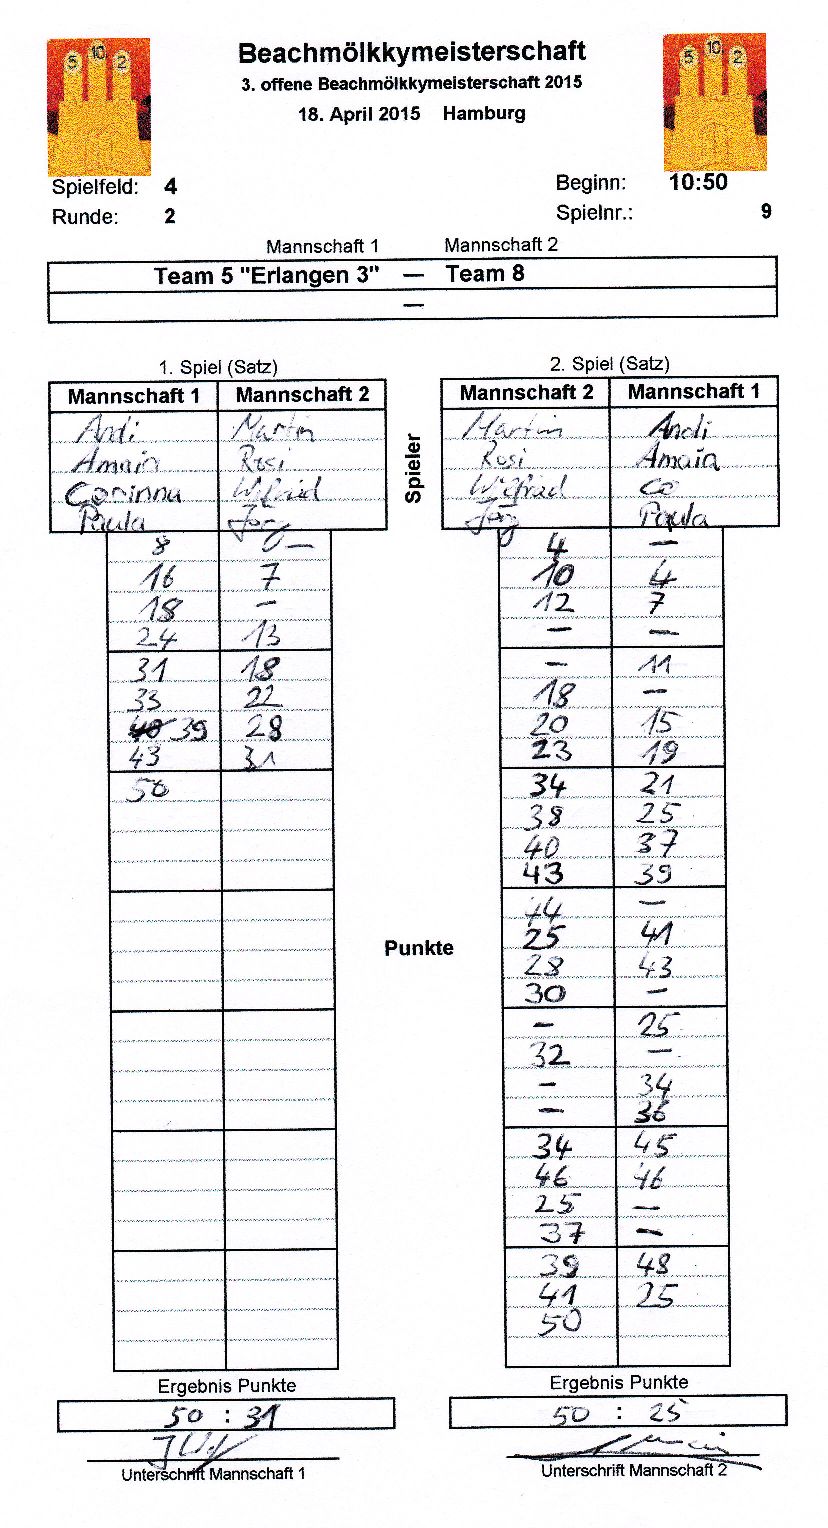 5 10 2
5 10 2
Beachmölkkymeisterschaft
3. offene Beachmölkkymeisterschaft 2015
18. April 2015 Hamburg
Spielfeld: 4 Beginn: 10:50
Runde: 2 Spielnr.: 9
Mannschaft 1 Mannschaft 2
Team 5 "Erlangen 3" — Team 8
—
1. Spiel (Satz) 2. Spiel (Satz)
Mannschaft 1 Mannschaft 2 Mannschaft 2 Mannschaft 1
Spieler
Andi Martin Martin Andi
Amaia Rosi Rosi Amaia
Corinna Wilfried Wilfried Co
Paula Jörg Jörg Paula
8 — 4 —
16 7 10 4
18 – 12 7
24 13 — —
31 18 — 11
33 22 18 —
39 28 20 15
43 31 23 19
50 34 21
38 25
40 37
43 39
44 —
Punkte
25 41
28 43
30 —
— 25
32 —
— 34
— 36
34 45
46 46
25 —
37 —
39 48
41 25
50
Ergebnis Punkte Ergebnis Punkte
50 : 31 50 : 25
Unterschrift Mannschaft 1 Unterschrift Mannschaft 2